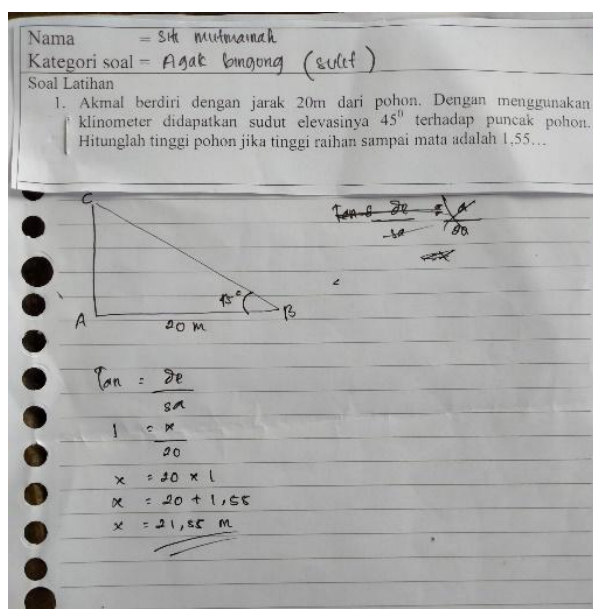 Nama = Siti Mutmainah
Kategori soal = Agak bingong (sulit)
Soal Latihan
1. Akmal berdiri dengan jarak 20m dari pohon. Dengan menggunakan
klinometer didapatkan sudut elevasinya 45⁰ terhadap puncak pohon.
Hitunglah tinggi pohon jika tinggi raihan sampai mata adalah 1,55...
C
45°
A
B
20 m
Tan = de
sa
1 = x
20
x = 20 x 1
x = 20 + 1,55
x = 21,55 m